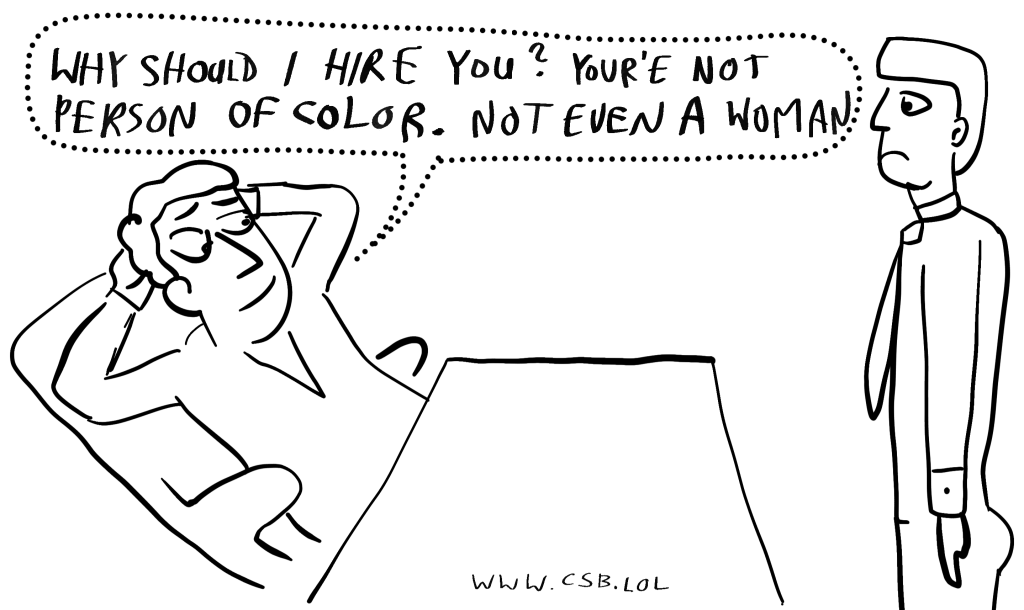 WHY SHOULD I HIRE YOU? YOUR'E NOT
PERSON OF COLOR. NOT EVEN A WOMAN
WWW.CSB.LOL